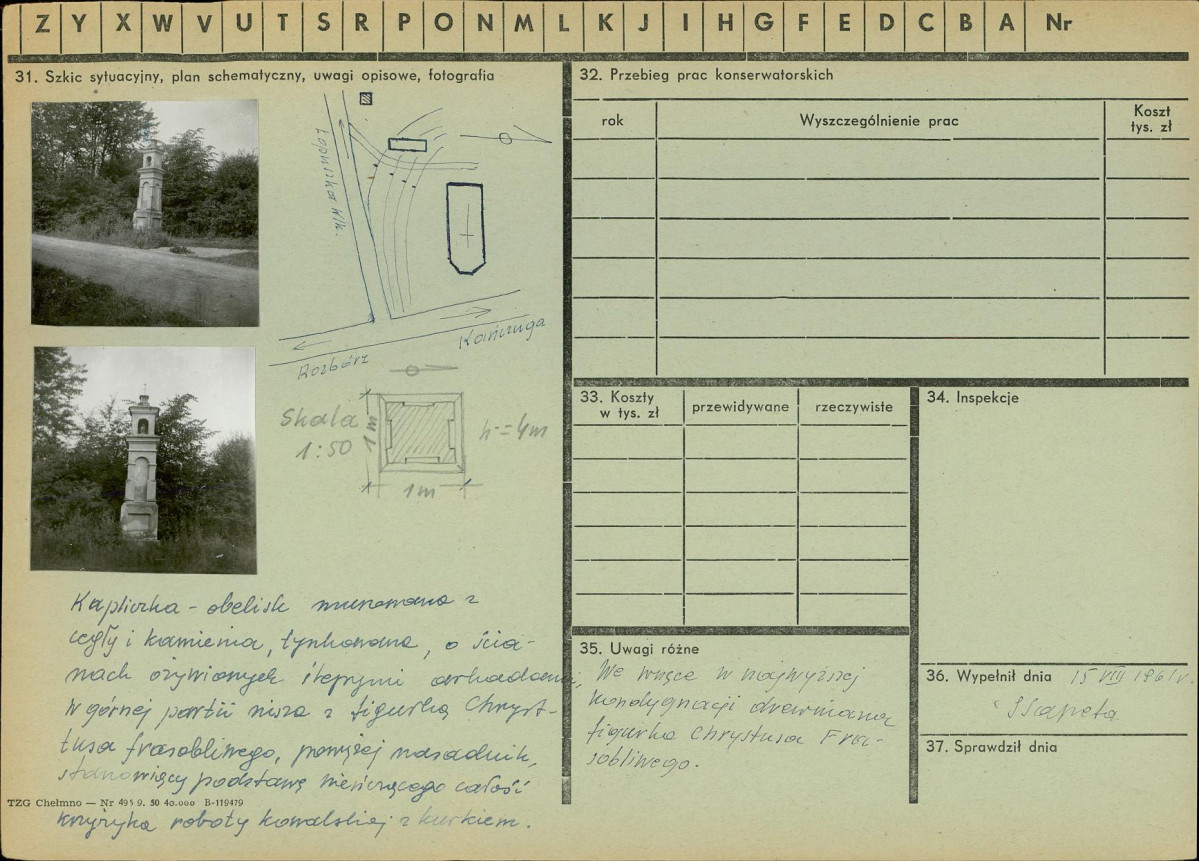 Z Y X W V U T S R P O N M L K J I H G F E D C B A Nr
31. Szkic sytuacyjny, plan schematyczny, uwagi opisowe, fotografia
Łopuszka Wlk.
Kańczuga
Rozbórz
Skala
1:50
1m
h=4m
1m
Kapliczka - obelisk murowana z
cegły i kamienia, tynkowana, o ścia-
nach ożywionych ślepymi arkadami,
W górnej partii nisza z figurką Chrys-
tusa frasobliwego, powyżej nasadnik,
stanowiący podstawę wieńczącego całość
krzyżyka roboty kowalskiej z kurkiem.
TZG Chełmno — Nr 495 9. 50 40.000 B-119479
32. Przebieg prac konserwatorskich
rok
Wyszczególnienie prac
Koszt
tys. zł
33. Koszty
w tys. zł
przewidywane
rzeczywiste
34. Inspekcje
35. Uwagi różne
We wnęce w najwyższej
kondygnacji drewniana
figurka Chrystusa Fra-
sobliwego.
36. Wypełnił dnia 15 VIII 1961 r.
37. Sprawdził dnia